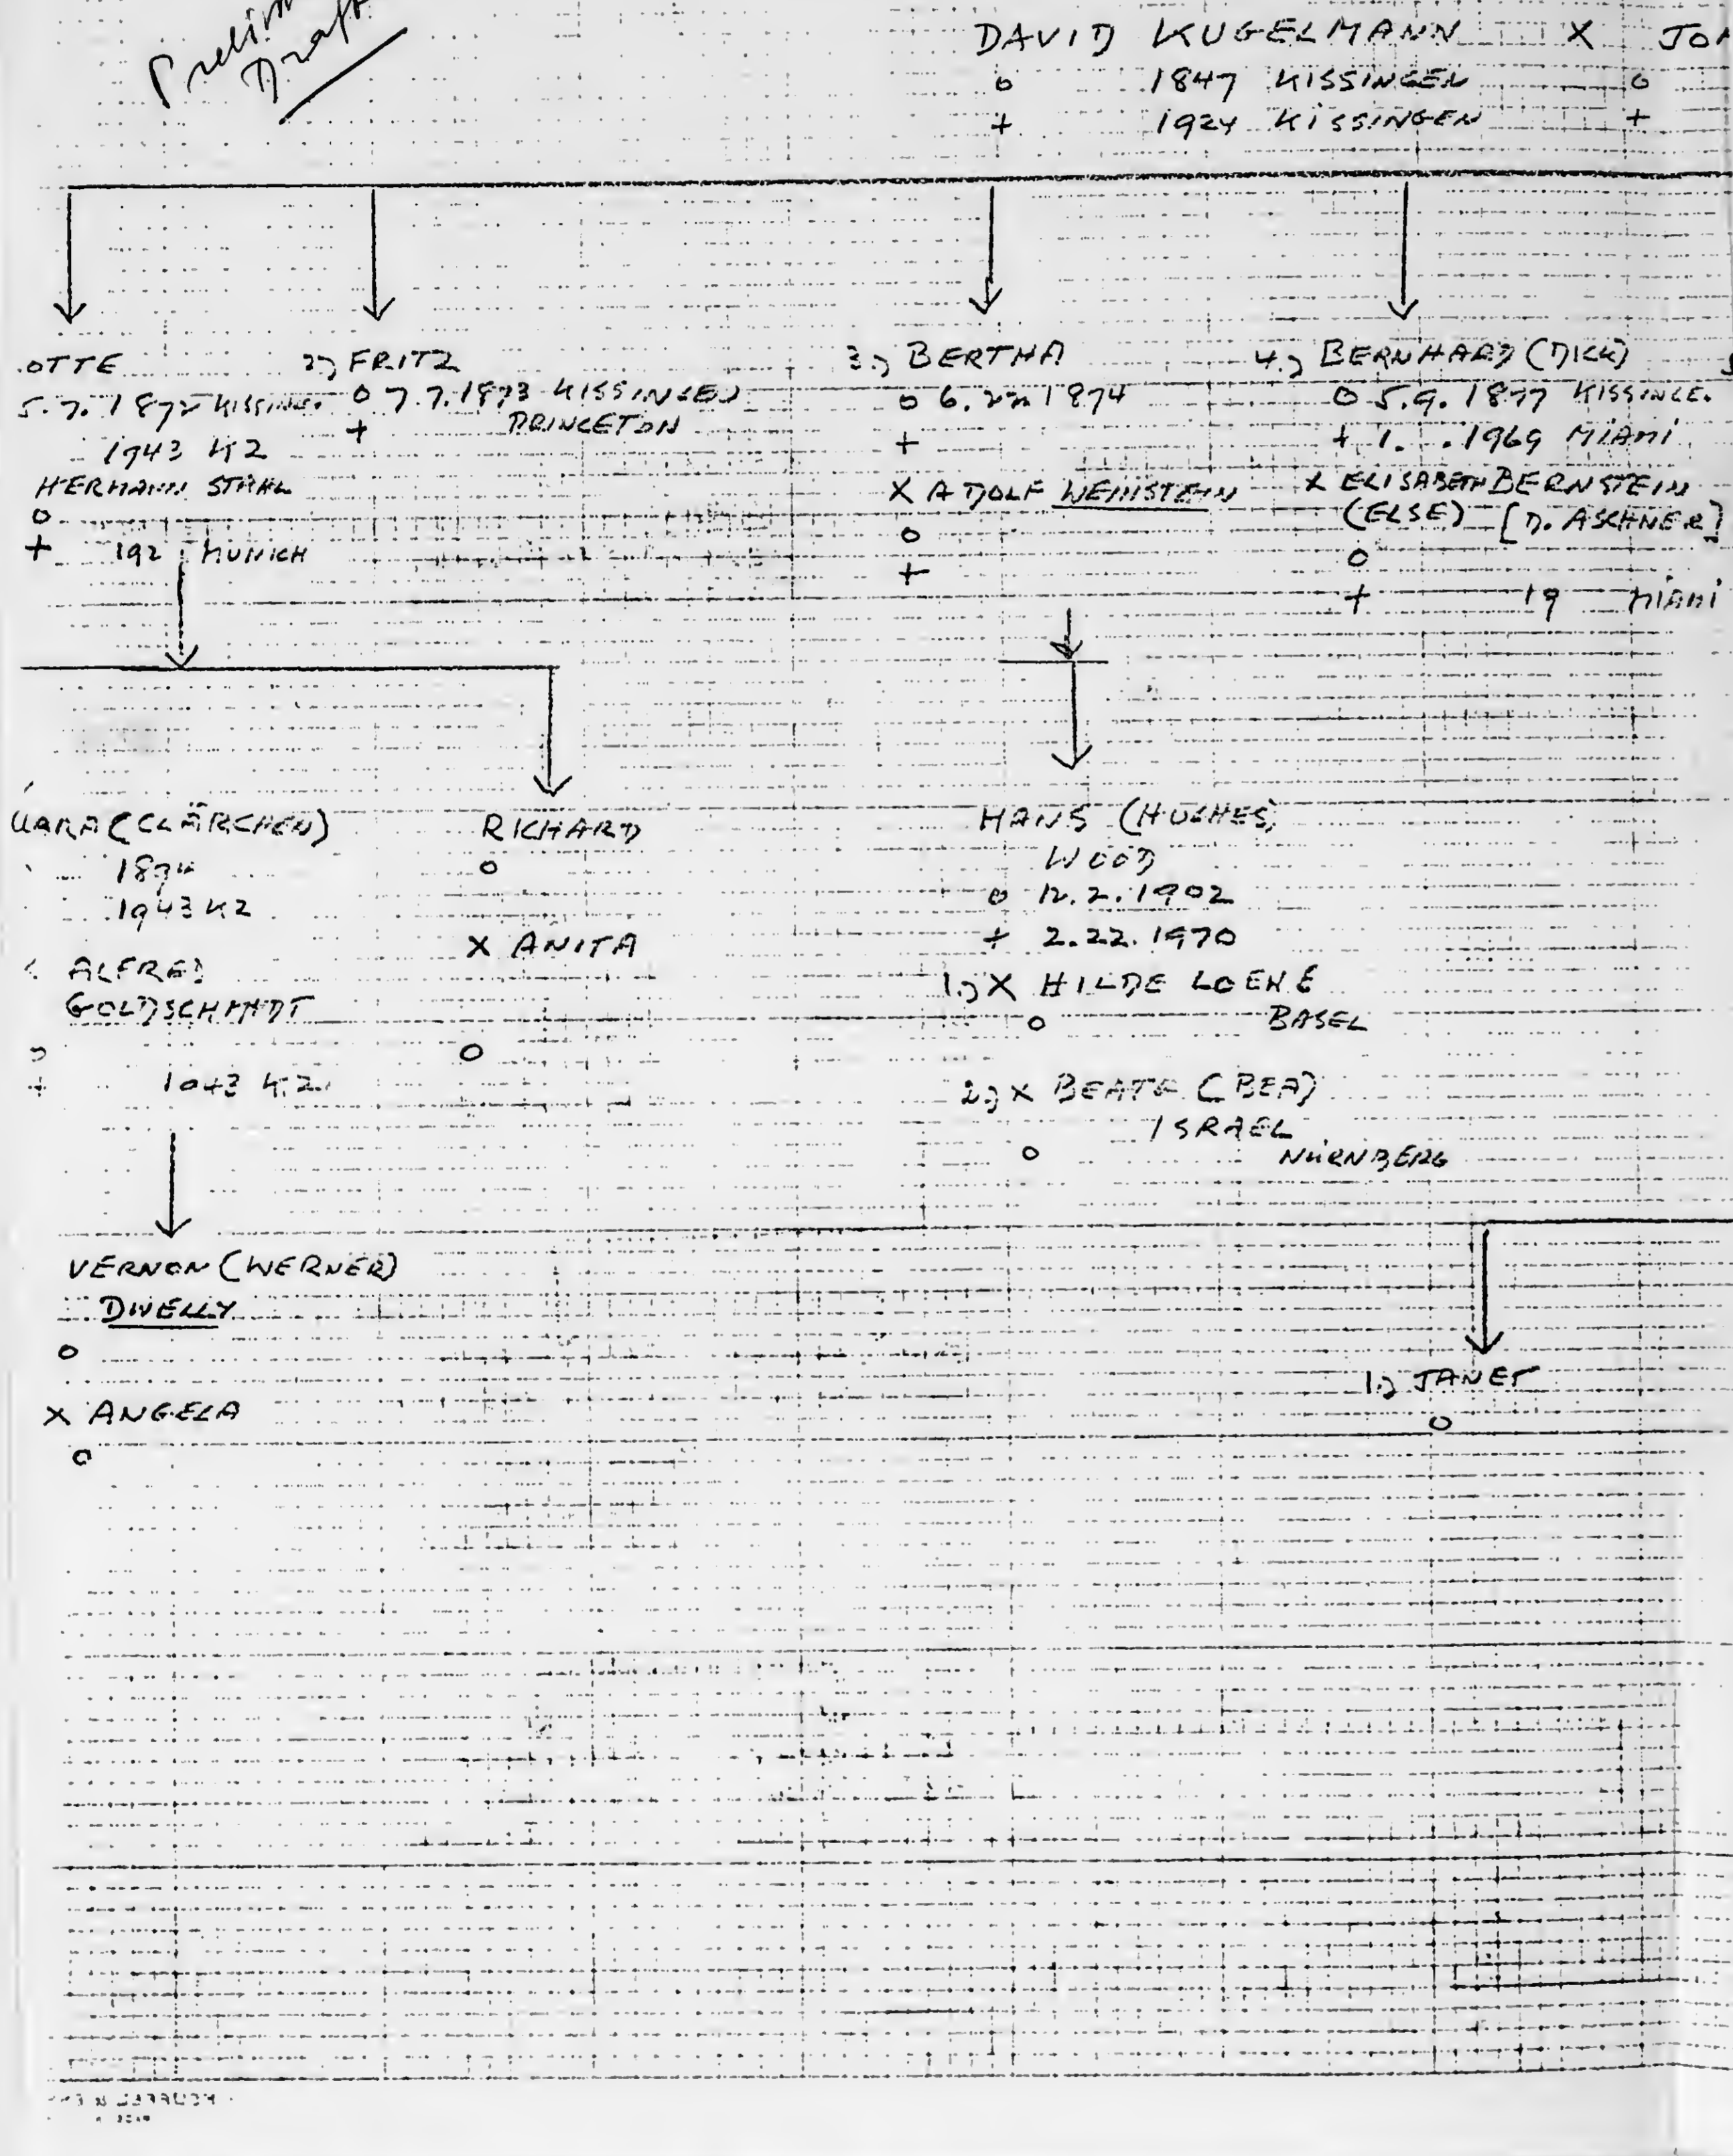 Prelim
Draft
DAVID KUGELMANN X JOH
o 1847 KISSINGEN o
+ 1924 KISSINGEN +
OTTE
5.7.1872 KISSING.
1943 KZ
HERMANN STAHL
o
+ 192 MUNICH
2.) FRITZ
o 7.7.1873 KISSINGEN
+ PRINCETON
3.) BERTHA
o 6.22.1874
+
X ADOLF WEINSTEIN
o
+
4.) BERNHARD (DICK)
o 5.9.1877 KISSINGE.
+ 1. .1969 MIAMI
X ELISABETH BERNSTEIN
(ELSE) [D. ASCHNER]
o
+ 19 MIAMI
CLARA (CLÄRCHEN)
1894
1943 KZ
ALFRED
GOLDSCHMIDT
+ 1943 KZ.
RICHARD
o
X ANITA
o
HANS (HUGHES)
WOOD
o 12.2.1902
+ 2.22.1970
1.) X HILDE LOEHE
o BASEL
2.) X BEATE (BEA)
ISRAEL
o NÜRNBERG
VERNON (WERNER)
DWELLY
o
X ANGELA
o
1.) JANET
o